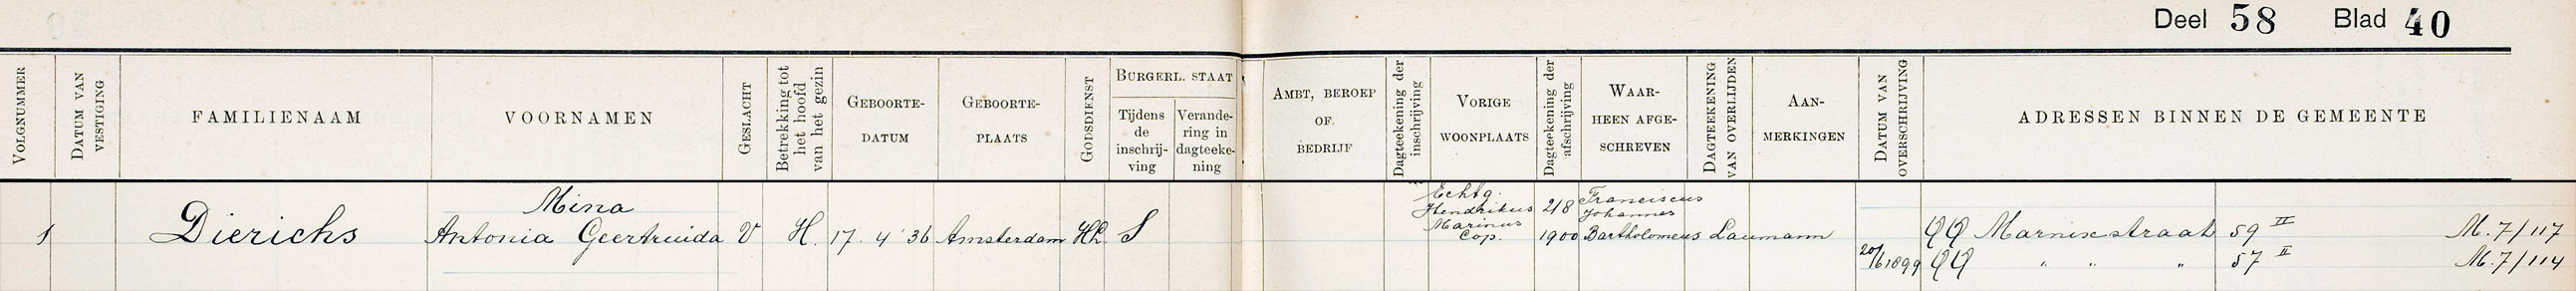 Deel 58 Blad 40
VOLGNUMMER
DATUM VAN
VESTIGING
FAMILIENAAM
VOORNAMEN
GESLACHT
Betrekking tot
het hoofd
van het gezin
GEBOORTE-
DATUM
GEBOORTE-
PLAATS
GODSDIENST
BURGERL. STAAT
Tijdens
de
inschrij-
ving
Verande-
ring in
dagteeke-
ning
AMBT, BEROEP
OF
BEDRIJF
Dagteekening der
inschrijving
VORIGE
WOONPLAATS
Dagteekening der
afschrijving
WAAR-
HEEN AFGE-
SCHREVEN
DAGTEEKENING
VAN OVERLIJDEN
AAN-
MERKINGEN
DATUM VAN
OVERSCHRIJVING
ADRESSEN BINNEN DE GEMEENTE
1
Dierichs
Mina
Antonia Geertruida
V
H.
17. 4 '36
Amsterdam
S
Echtg.
Hendrikus
Marinus
Cop.
21/8
1900
Franciscus
Johannes
Bartholomeus Laumann
QQ Marnixstraat 59 II M. 7/117
20/6 1899 QQ " " " 57 II M. 7/114